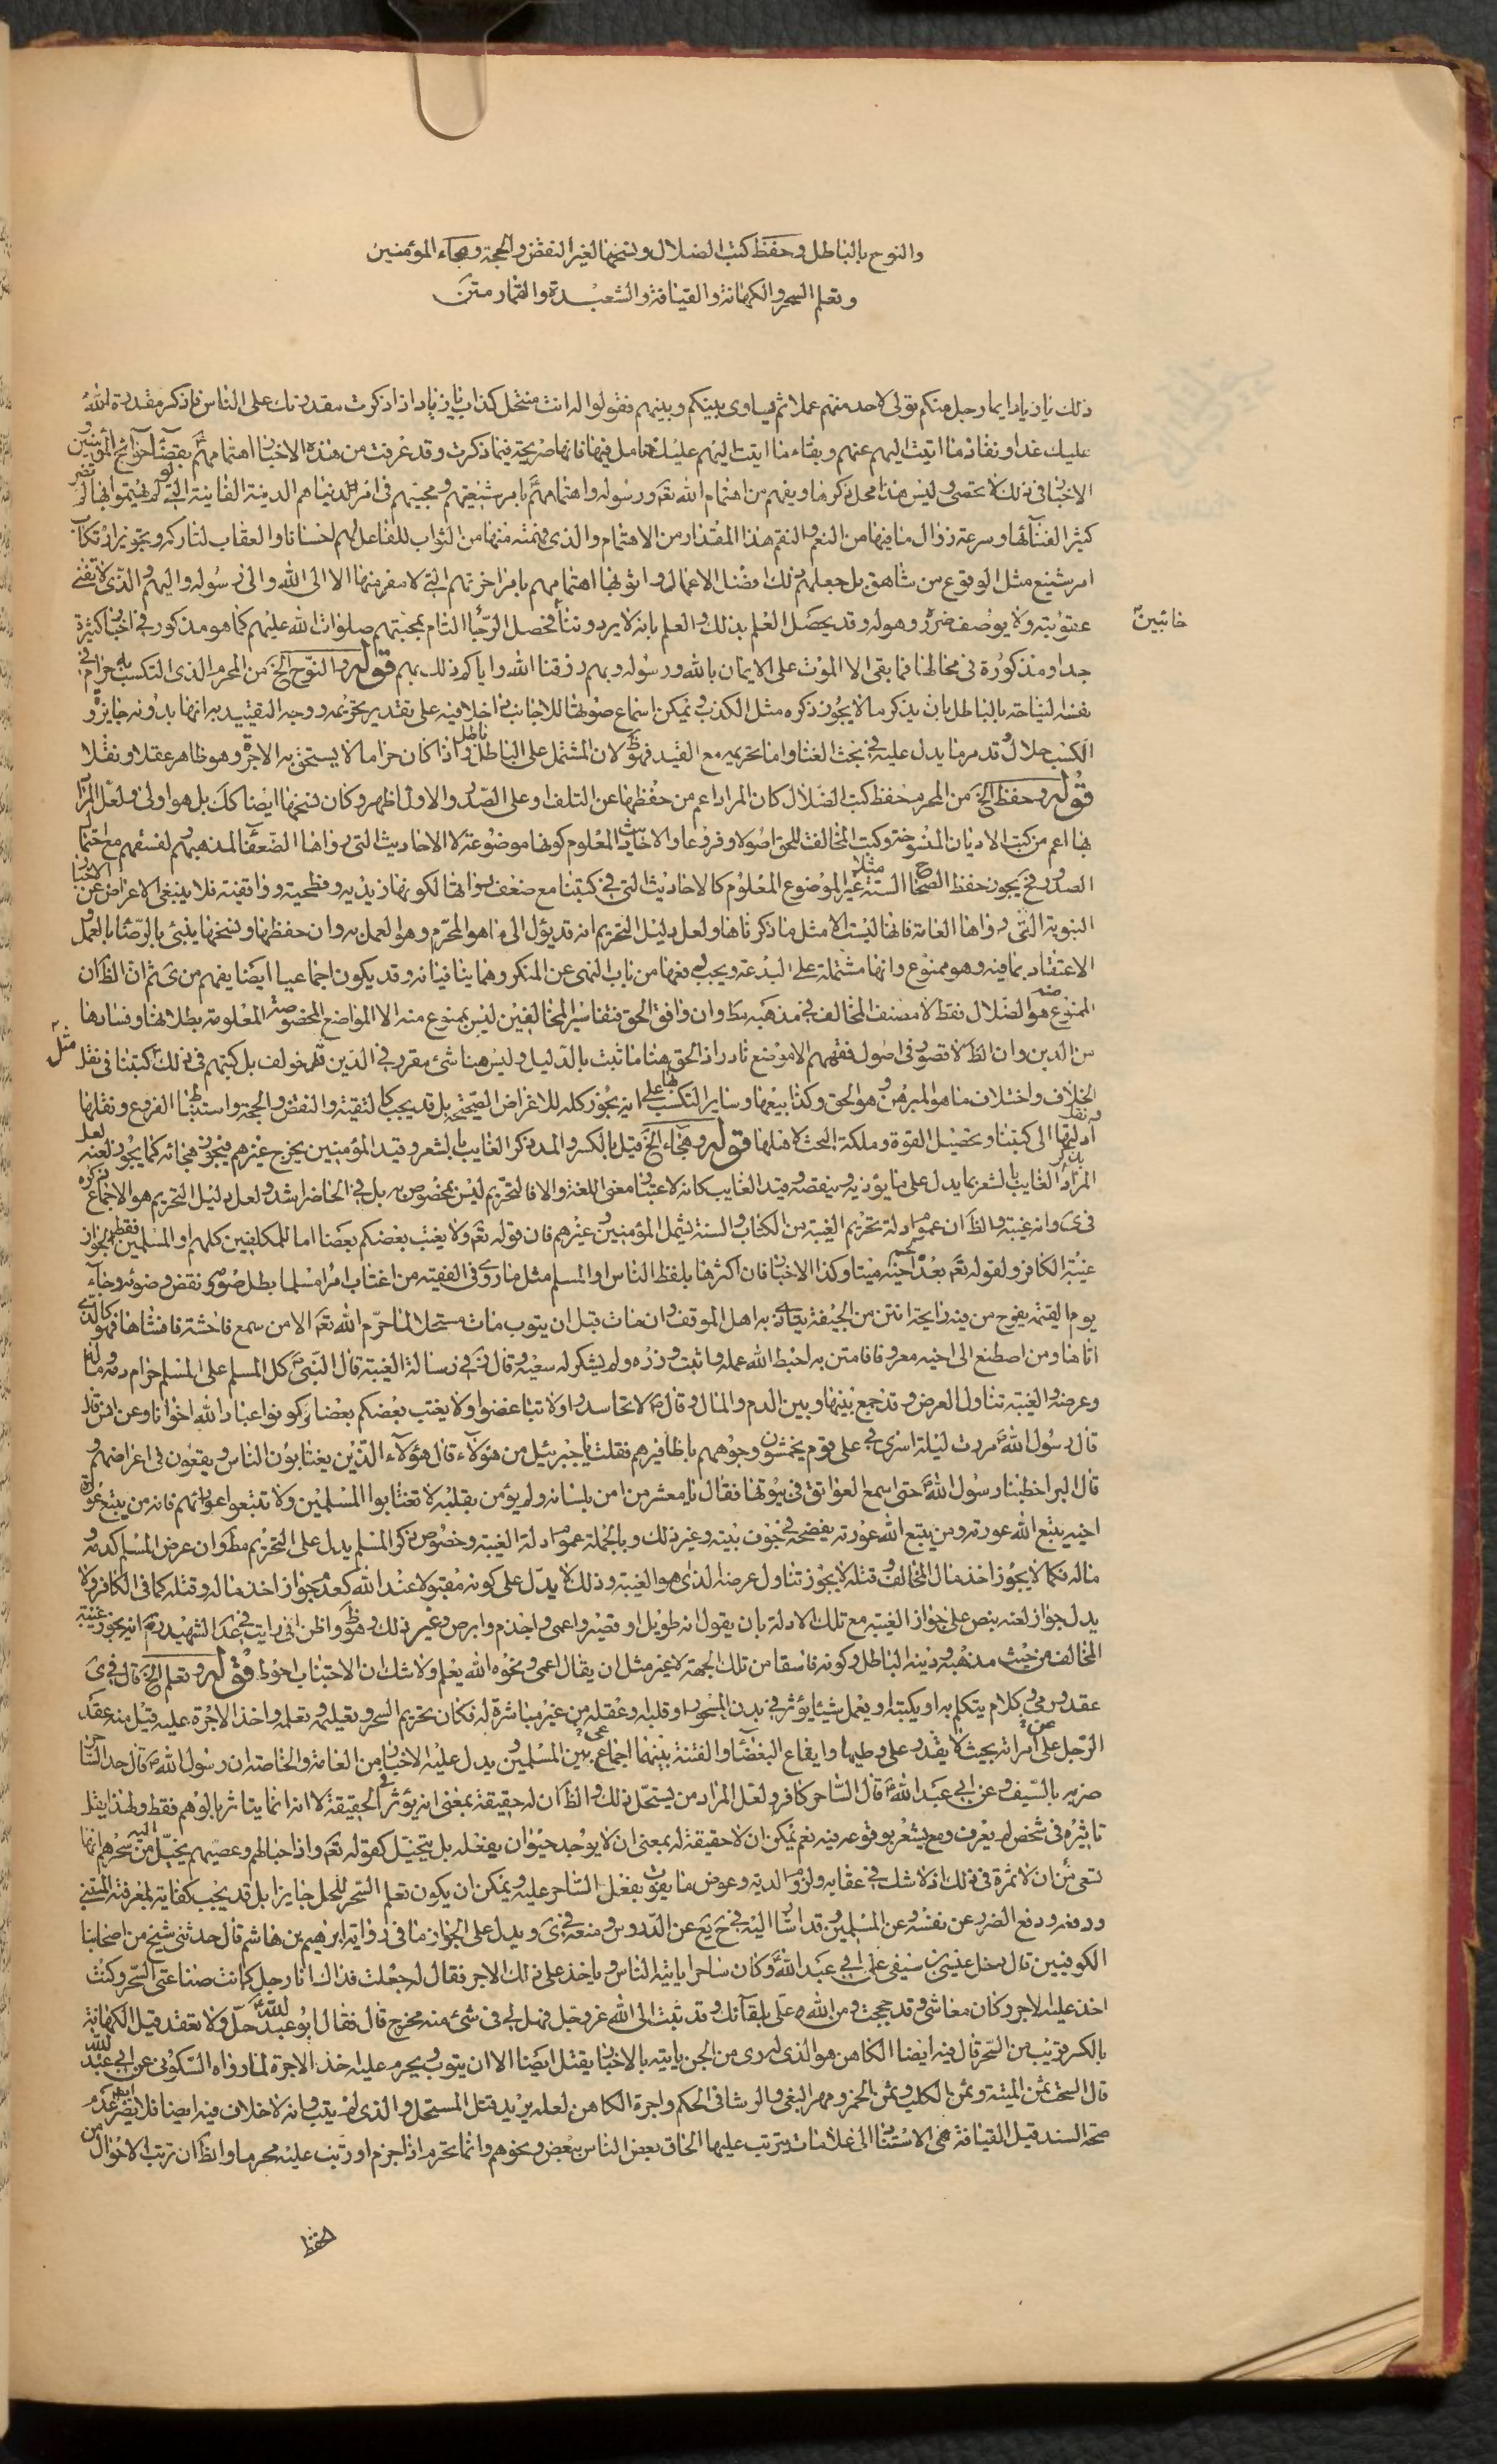 والنوح بالباطل وحفظ كتب الضلال ونسخها لغير النقض والحجة وهجاء المؤمنين
وتعلم السحر والكهانة والقيافة والشعبدة والقمار متن
ذلك يا زياد ايما رجل منكم تولى لاحد منهم عملا ثم يساوى بينكم وبينهم فقولوا له انت منتحل كذاب يا زياد اذا ذكرت مقدرتك على الناس فاذكر مقدرة الله
عليك غدا ونفاذ ما اتيت اليهم عنهم وبقاء ما اتيت اليهم عليك فتامل فيها فانها صريحة فيما ذكرت وقد عرفت من هذه الاخبار اهتمامهم بقضاء حوائج المؤمنين و
الاخبار فى ذلك لا تحصى وليس هذا محل ذكرها ويفهم من اهتمام الله تعم ورسوله واهتمامهم بامر شيعتهم ومحبيهم فى امر الدنيا هم الدنية الفانية التى لم يهتموا بها
كثير الفنائها وسرعة زوال ما فيها من النعم والنقم هذا المقدار من الاهتمام والذى فهمته منها من الثواب للفاعل لهم احسانا والعقاب لتاركه وتجويز ارتكاب
امر شنيع مثل الوقوع من شاهق بل جعلهم ذلك افضل الاعمال واثوبها اهتمامهم بامر اخرتهم التى لا مفر منها الا الى الله والى رسوله واليهم والذى لا تفنى
عقوبته ولا يوصف ضرره وهوله وقد يحصل العلم بذلك والعلم بانه لا يردوننا فحصل الرجاء التام بمحبتهم صلوات الله عليهم كما هو مذكور فى اخبار كثيرة
خائبين
جدا ومذكورة فى محالها فما بقى الا الموت على الايمان بالله ورسوله وبهم رزقنا الله واياكم ذلك بهم قوله والنوح الخ من المحرم الذى التكسب به حرام فى
نفسه النياحة بالباطل بان يذكر ما لا يجوز ذكره مثل الكذب ويمكن اسماع صوتها للاجانب داخلا فيه على تقدير تحريمه ووجه التقييد به انها بدونه جايزة و
الكسب حلال وقد مر ما يدل عليه فى بحث الغناء واما تحريمه مع القيد فهو ظ لان المشتمل على الباطل باطل واذا كان حراما لا يستحق به الاجرة وهو ظاهر عقلا ونقلا
قوله وحفظ الخ من المحرم حفظ كتب الضلال كان المراد اعم من حفظها عن التلف او على الصدر والاول اظهر وكان نسخها ايضا كك بل هو اولى ولعل المراد
بها اعم من كتب الاديان المنسوخة وكتب المخالف للحق اصولا وفروعا والاحاديث المعلوم كونها موضوعة لا الاحاديث التى رواها الضعفاء لمذهبهم لفسقهم مع احتمال
الصدور فح يجوز حفظ الصحاح الستة مثلا غير الموضوع المعلوم كالاحاديث التى فى كتبنا مع ضعف رواتها لكونها زيدية وفطحية وواقفية فلا ينبغى الاعراض عن الاخبار
النبوية التى رواها العامة فانها ليست الا مثل ما ذكرناها ولعل دليل التحريم انه قد يؤل الى ما هو المحرم وهو العمل به وان حفظها ونسخها ينبئ بالرضا بالعمل و
الاعتقاد بما فيه وهو ممنوع وانها مشتملة على البدعة ويجب دفعها من باب النهى عن المنكر وهما ينافيانه وقد يكون اجماعيا ايضا يفهم من ى ثم ان الظ ان
الممنوع منه هو الضلال فقط لا مصنف المخالف فى مذهبه قط وان وافق الحق فتفاسير المخالفين ليس بممنوع منه الا المواضع المخصوصة المعلومة بطلانها وفسادها
من الدين وان الظ لا قصور فى اصول فقههم الا موضع نادر اذ الحق هنا ما ثبت بالدليل وليس هنا شئ مقرر فى الدين قد خولف بل كتبهم فى ذلك ككتبنا فى نقل مثل
الخلاف واختلاف ما هو المبرهن وهو الحق وكذا بيعها وساير التكسب بها على انه يجوز كله للاغراض الصحيحة بل قد يجب كالتقية والنقض والحجة واستنباط الفروع ونقلها
ونقل ادلتها الى كتبنا وتحصيل القوة وملكة البحث لاهلها قوله وهجاء الخ قيل بالكسر والمد ذكر الغايب بالشعر وقيد المؤمنين يخرج غيرهم فيجوز هجائه كما يجوز لعنه لعل
المراد بذكر الغايب بالشعر بما يدل على ما يؤذيه وينقصه وقيد الغايب كانه لاعتبار معنى اللغة والا فالتحريم ليس بمخصوص به بل فى الحاضر اشد ولعل دليل التحريم هو الاجماع ذكره
فى ى وانه غيبة والظ ان عموم ادلة تحريم الغيبة من الكتاب والسنة يشمل المؤمنين وغيرهم فان قوله تعم ولا يغتب بعضكم بعضا اما للمكلفين كلهم او المسلمين فقط لجواز
غيبة الكافر ولقوله تعم بعده لحم اخيه ميتا وكذا الاخبار فان اكثرها بلفظ الناس او المسلم مثل ما روى فى الفقيه من اغتاب امرا مسلما بطل صومه ونقض وضوئه وجاء
يوم القيمة يفوح من فيه رايحة انتن من الجيفة يتاذى به اهل الموقف وان مات قبل ان يتوب مات مستحلا لما حرم الله تعم الا من سمع فاحشة فافشاها فهو كالذى
اتاها ومن اصطنع الى اخيه معروفا فامتن به احبط الله عمله وثبت وزره ولم يشكر له سعيه وقال فى رسالة الغيبة قال النبى ص كل المسلم على المسلم حرام دمه وماله
وعرضه والغيبة تناول العرض وقد جمع بينها وبين الدم والمال وقال ص لا تحاسدوا ولا تباغضوا ولا يغتب بعضكم بعضا وكونوا عباد الله اخوانا وعن انس قال
قال رسول الله ص مررت ليلة اسرى بى على قوم يخمشون وجوههم باظافيرهم فقلت يا جبرئيل من هؤلاء قال هؤلاء الذين يغتابون الناس ويقعون فى اعراضهم و
قال البرا خطبنا رسول الله ص حتى اسمع العواتق فى بيوتها فقال يا معشر من امن بلسانه ولم يؤمن بقلبه لا تغتابوا المسلمين ولا تتبعوا عوراتهم فانه من يتبع عورة
اخيه يتبع الله عورته ومن يتبع الله عورته يفضحه فى جوف بيته وغير ذلك وبالجملة عموم ادلة الغيبة وخصوص ذكر المسلم يدل على التحريم مط وان عرض المسلم كدمه و
ماله فكما لا يجوز اخذ مال المخالف وقتله لا يجوز تناول عرضه الذى هو الغيبة وذلك لا يدل على كونه مقبولا عند الله كعدم جواز اخذ ماله وقتله كما فى الكافر ولا
يدل جواز لعنه بنص على جواز الغيبة مع تلك الادلة بان يقول انه طويل او قصير واعمى واجذم وابرص وغير ذلك وهو ظ واظن انى رايت فى قواعد الشهيد ره انه يجوز غيبة
المخالف من حيث مذهبه ودينه الباطل وكونه فاسقا من تلك الجهة لا غير مثل ان يقال اعمى ونحوه الله يعلم ولا شك ان الاجتناب احوط قوله وتعلم الخ قال فى ى
عقد ورمى وكلام يتكلم به او يكتبه او يعمل شيئا يؤثر فى بدن المسحور او قلبه وعقله من غير مباشرة له فكان تحريم السحر وتعليمه وتعلمه واخذ الاجرة عليه قيل منه عقد
الرجل عن امراته بحيث لا يقدر على وطيها وايقاع البغضاء والفتنة بينهما اجماعى بين المسلمين ويدل عليه الاخبار من العامة والخاصة ان رسول الله ص قال حد الساحر
ضربه بالسيف وعن ابى عبد الله ع قال الساحر كافر ولعل المراد من يستحل ذلك والظ ان له حقيقة بمعنى انه يؤثر فى الحقيقة لا انه انما يتاثر بالوهم فقط ولهذا يقل
تاثيره فى شخص لم يعرف ومع يشعر بوقوعه فيه نعم يمكن ان لا حقيقة له بمعنى ان لا يوجد حيوان بفعله بل يتخيل كقوله تعم واذا حبالهم وعصيهم يخيل اليه من سحرهم انها
تسعى مع ان لا ثمرة فى ذلك اذ لا شك فى عقابه ولزوم الدية وعوض ما يفوت بفعل الساحر عليه ويمكن ان يكون تعلم السحر للحل جايزا بل قد يجب كفاية لمعرفة المتنبى
ودفعه ودفع الضرر عن نفسه وعن المسلمين وقد اشار اليه فى ح يع عن الدروس ومنعه فى ى ويدل على الجواز ما فى رواية ابرهيم بن هاشم قال حدثنى شيخ من اصحابنا
الكوفيين قال دخل عيسى بن سيفى على ابى عبد الله ع وكان ساحرا ياتيه الناس وياخذ على ذلك الاجر فقال له جعلت فداك انا رجل كانت صناعتى السحر وكنت
اخذ عليه الاجر وكان معاشى وقد حججت ومن الله على بلقائك وقد تبت الى الله عز وجل فهل لى فى شئ منه مخرج قال فقال ابو عبد الله ع حل ولا تعقد قيل الكهانة
بالكسر قريب من السحر قال فيه ايضا الكاهن هو الذى له رى من الجن ياتيه بالاخبار يقتل ايضا الا ان يتوب ويحرم عليه اخذ الاجرة لما رواه السكونى عن ابى عبد الله
قال السحت ثمن الميتة وثمن الكلب وثمن الخمر ومهر البغى والرشا فى الحكم واجرة الكاهن لعله يريد قتل المستحل والذى لم يتب وانه لا خلاف فيه ايضا فلا يضر عدم
صحة السند قيل القيافة هى الاستناد الى علامات يترتب عليها الحاق بعض الناس ببعض ونحوهم وانما تحرم اذا جزم او رتب عليه محرما والظ ان ترتب الاحوال من
الحفظ